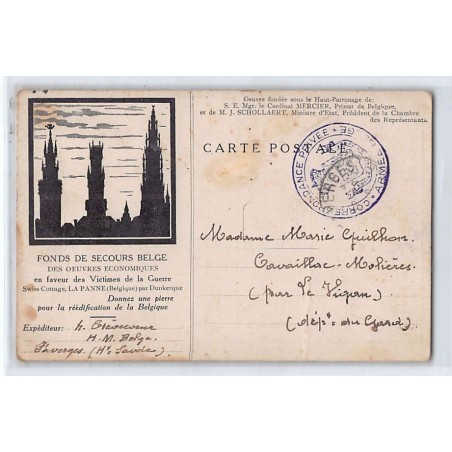 Oeuvre fondée sous le Haut-Patronage de:
S. E. Mgr. le Cardinal MERCIER, Primat de Belgique,
et de M. J. SCHOLLAERT, Ministre d'Etat, Président de la Chambre
des Représentants.
CARTE POSTALE
CORRESPONDANCE PRIVÉE
ARMÉE
FONDS DE SECOURS BELGE
DES OEUVRES ECONOMIQUES
en faveur des Victimes de la Guerre
Swiss Cottage, LA PANNE (Belgique) par Dunkerque
Donnez une pierre
pour la réédification de la Belgique
Expéditeur: h.
H. M. Belge.
Faverges (Hte Savoie)
Madame Marie Guilhon
Cavaillac-Molières
(par Le Vigan)
(dépt du Gard)